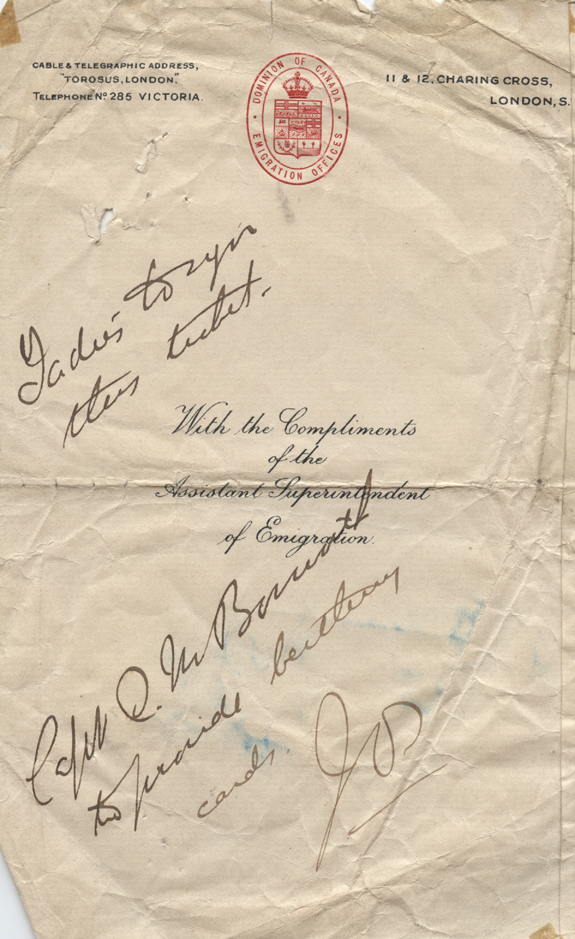 CABLE & TELEGRAPHIC ADDRESS,
"TOROSUS, LONDON."
TELEPHONE Nº 285 VICTORIA.
DOMINION OF CANADA
EMIGRATION OFFICES
11 & 12, CHARING CROSS,
LONDON, S.
Ladies to sign
this ticket.
With the Compliments
of the
Assistant Superintendent
of Emigration.
Capt
to provide berthing
cards.